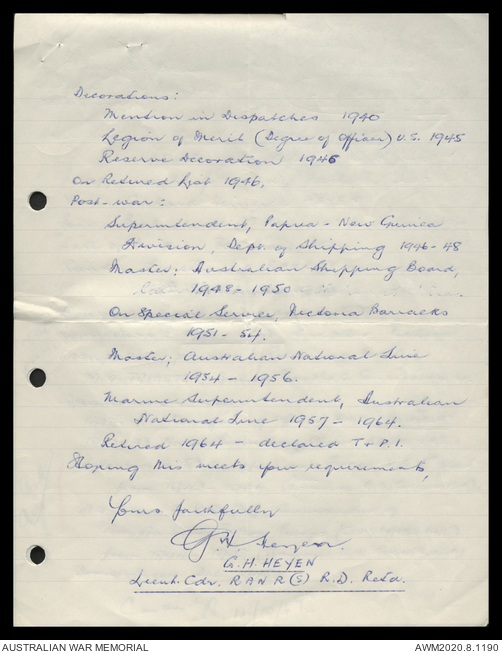 Decorations:
Mention in Despatches 1940
Legion of Merit (Degree of Officer) U.S. 1945
Reserve Decoration 1945
On Retired List 1946.
Post-war:
Superintendent, Papua - New Guinea
Division, Dept. of Shipping 1946-48
Master; Australian Shipping Board,
1948 - 1950
On Special Service, Victoria Barracks
1951 - 54.
Master; Australian National Line
1954 - 1956.
Marine Superintendent, Australian
National Line 1957 - 1964.
Retired 1964 - declared T + P.I.
Hoping this meets your requirements,
Yours faithfully
G H Heyen.
G. H. HEYEN
Lieut. Cdr. R A N R (S) R.D. Retd.
AUSTRALIAN WAR MEMORIAL
AWM2020.8.1190